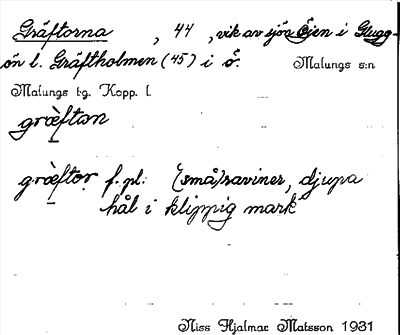 Gräftorna, 44, vik av sjön Öjen i Glugg-
ön l. Gräftholmen (45) i ö. Malungs s:n
Malungs tg. Kopp. l.
græ̀ftɑn
græ̀ftor f. pl. (små)raviner, djupa
hål i klippig mark
Niss Hjalmar Matsson 1931